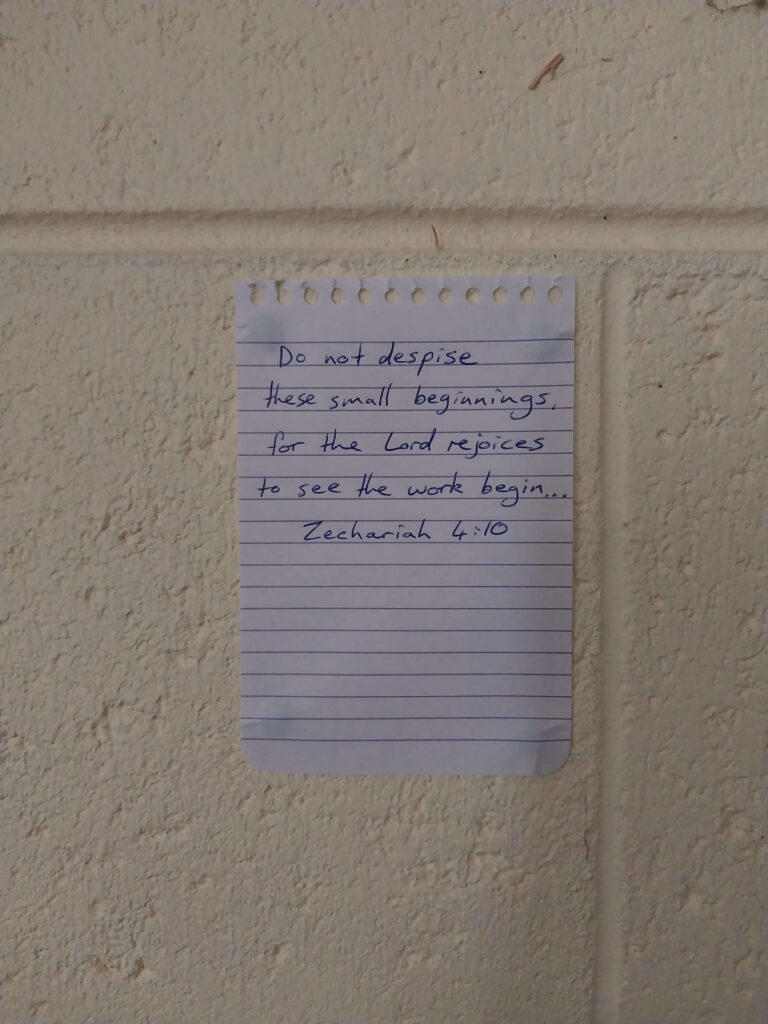 Do not despise
these small beginnings,
for the Lord rejoices
to see the work begin...
Zechariah 4:10